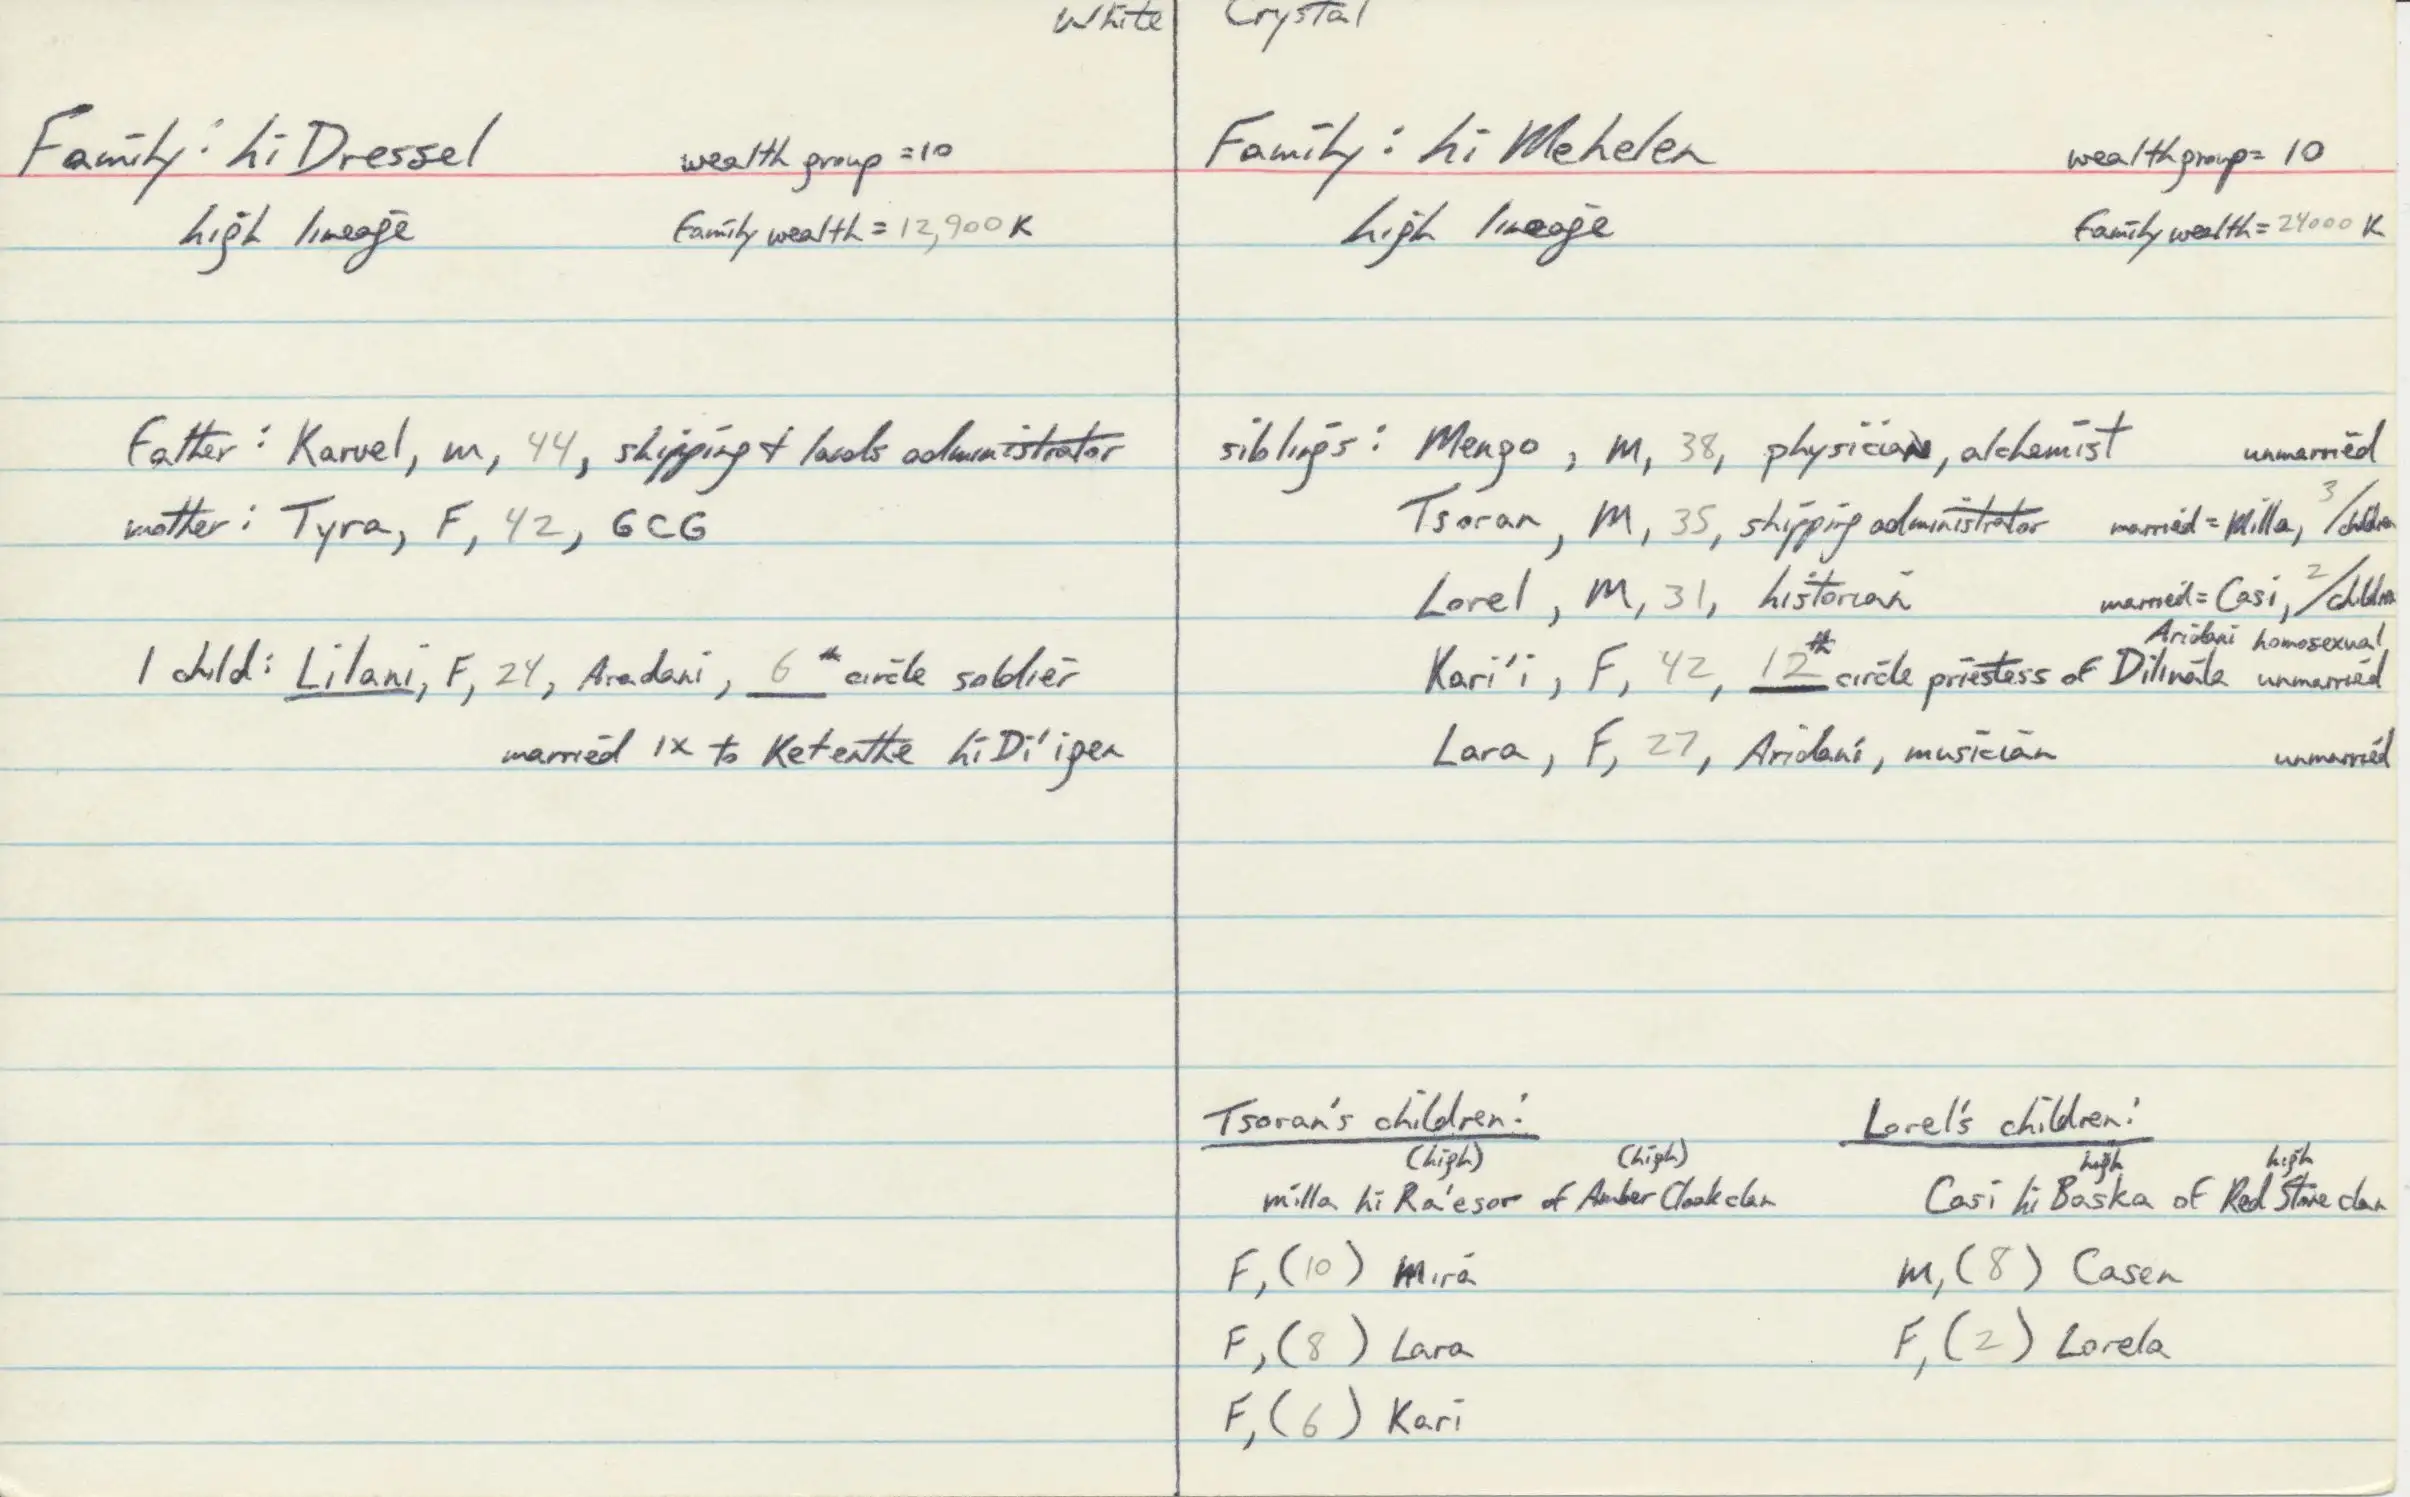 White Crystal
Family: hi Dressel
wealth group = 10
high lineage
Family wealth = 12,900 K
Father: Karvel, M, 44, shipping + lands administrator
mother: Tyra, F, 42, GCG
1 child: Lilani, F, 24, Aradani, 6th circle soldier
married 1x to Ketenthe hi Di'igen
Family: hi Mehelen
wealth group = 10
high lineage
Family wealth = 24000 K
siblings: Mengo, M, 38, physician, alchemist unmarried
Tsoran, M, 35, shipping administrator married = Milla, 3/children
Lorel, M, 31, historian married = Casi, 2/children
Aridani homosexual,
Kari'i, F, 42, 12th circle priestess of Dilinála unmarried
Lara, F, 27, Aridani, musician unmarried
Tsoran's children:
(high) (high)
milla hi Ra'esor of Amber Cloak clan
F, (10) Mira
F, (8) Lara
F, (6) Kari
Lorel's children:
high high
Casi hi Baska of Red Stone clan
M, (8) Casen
F, (2) Lorela